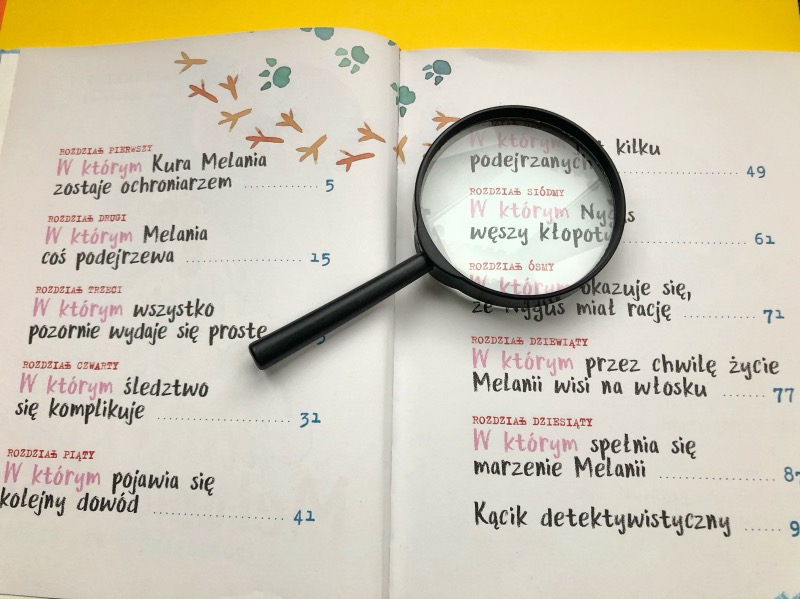 ROZDZIAŁ PIERWSZY
W którym Kura Melania
zostaje ochroniarzem .............. 5
ROZDZIAŁ DRUGI
W którym Melania
coś podejrzewa .............. 15
ROZDZIAŁ TRZECI
W którym wszystko
pozornie wydaje się proste
ROZDZIAŁ CZWARTY
W którym śledztwo
się komplikuje .............. 31
ROZDZIAŁ PIĄTY
W którym pojawia się
kolejny dowód .............. 41
W którym kilku
podejrzanych .............. 49
ROZDZIAŁ SIÓDMY
W którym Nygus
węszy kłopoty .............. 61
ROZDZIAŁ ÓSMY
W którym okazuje się,
że Nygus miał rację .............. 71
ROZDZIAŁ DZIEWIĄTY
W którym przez chwilę życie
Melanii wisi na włosku ...... 77
ROZDZIAŁ DZIESIĄTY
W którym spełnia się
marzenie Melanii ..............
Kącik detektywistyczny ......